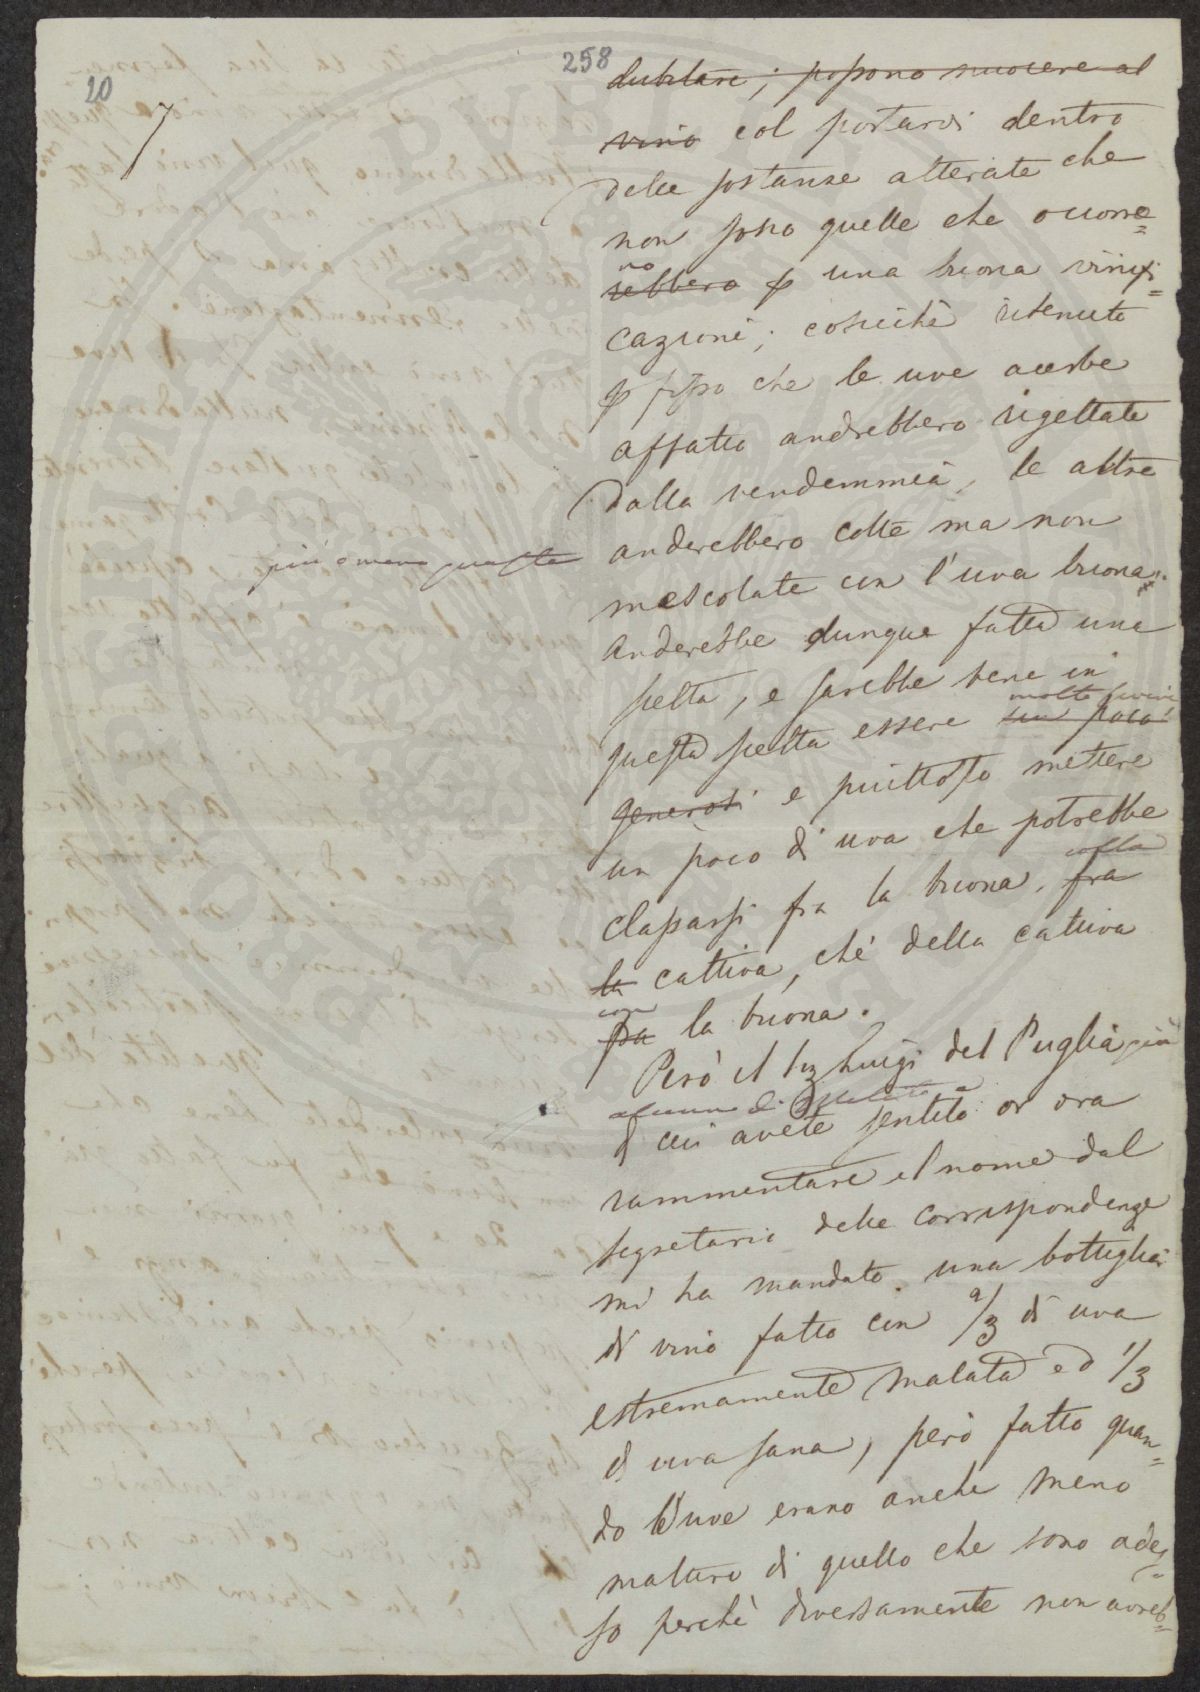 20
258
7
dubitare; possono nuocere al
vino col portarvi dentro
delle sostanze alterate che
non sono quelle che occorre=
no
rebbero p una buona vinifi=
cazione; cosicchè ritenuto
p fisso che le uve acerbe
affatto andrebbero rigettate
dalla vendemmia, le altre
più o meno guaste
anderebbero colte ma non
mescolate con l'uva buona.
Anderebbe dunque fatta una
scelta, e sarebbe bene in
molto severi
questa scelta essere un poco
generosi e piuttosto mettere
un poco di uva che potrebbe
classarsi fra la buona, fra
colla
la cattiva, chè della cattiva
con
fra la buona.
Però il Luigi del Puglia già
alunno di
di cui avete sentito or ora
rammentare il nome dal
segretario delle corrispondenze
mi ha mandato una bottiglia
di vino fatto con 2/3 di uva
estremamente malata ed 1/3
di uva sana, però fatto quan=
do l'uve erano anche meno
mature di quello che sono ades=
so perchè diversamente non avreb=